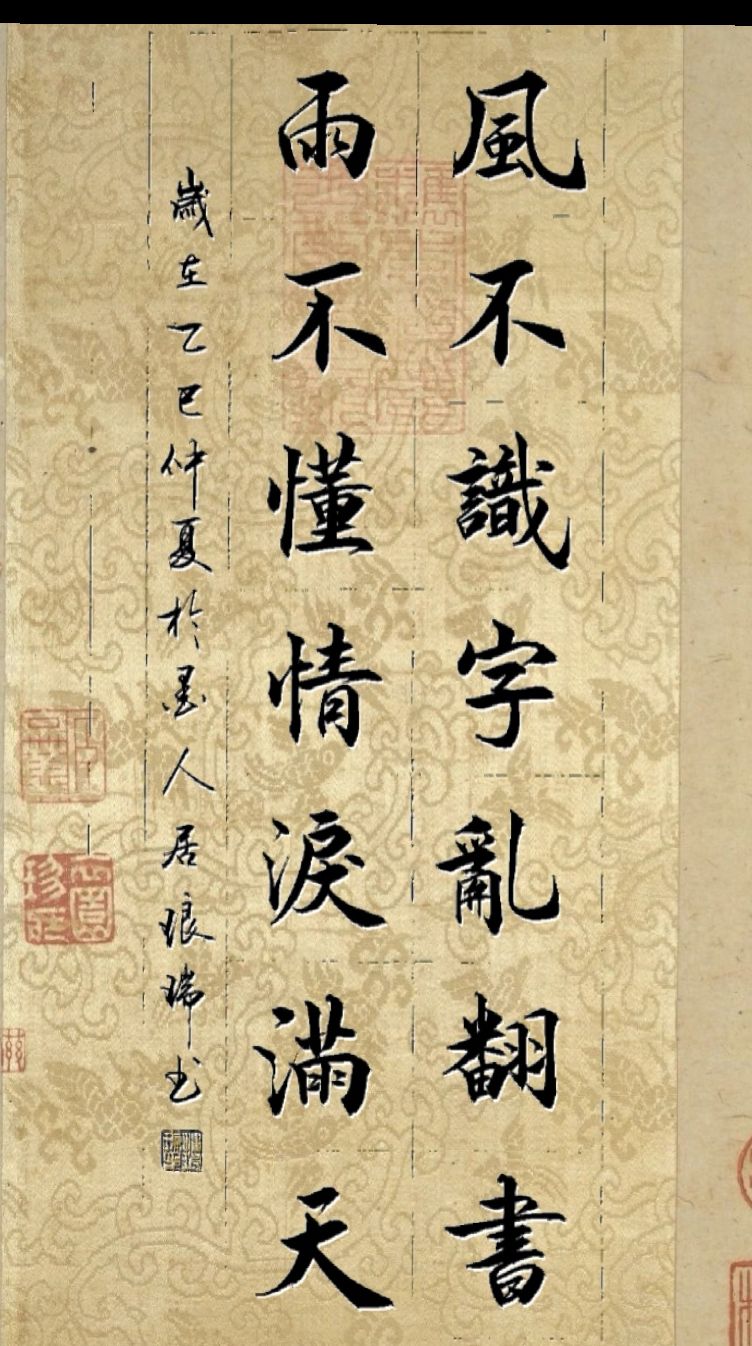 風不識字亂翻書
雨不懂情淚滿天
歲在乙巳仲夏於墨人居琅瑞书